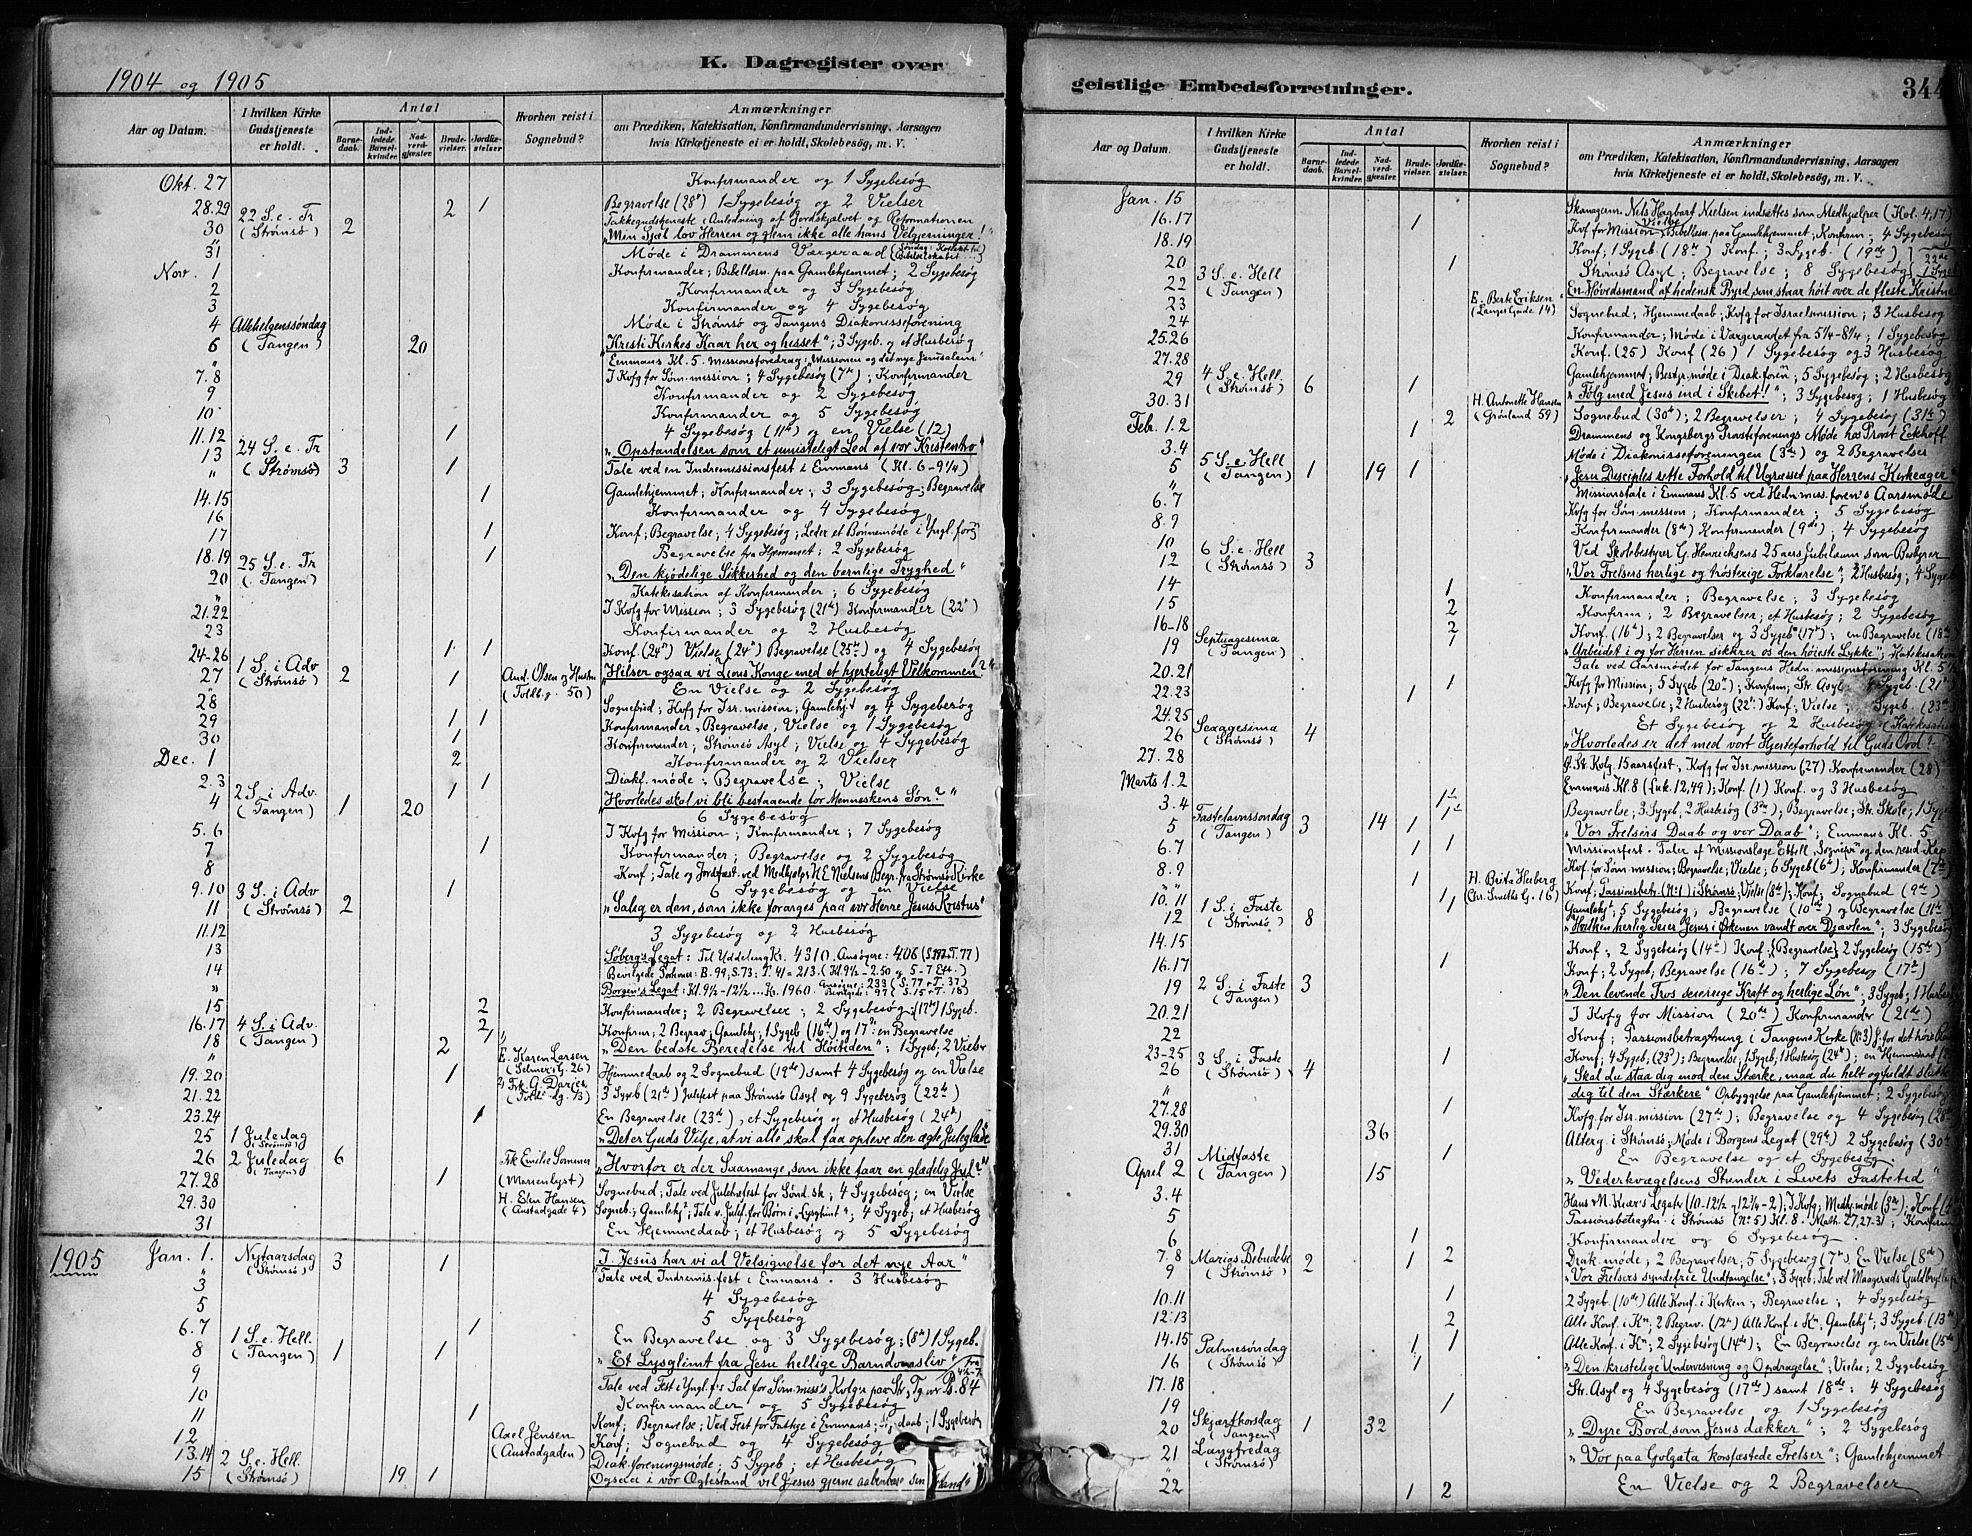 1904 og 1905
K. Dagregister over
Aar og Datum.
I hvilken Kirke Gudstjeneste er holdt.
Antal
Barnedaab.
Indledede Barselkvinder.
Nadverdgjæster.
Brudevielser.
Jordfæstelser
Hvorhen reist i Sognebud?
Anmærkninger
om Prædiken, Katekisation, Konfirmandundervisning, Aarsagen
hvis Kirketjeneste ei er holdt, Skolebesøg, m. V.
Okt. 27 Konfirmander og 1 Sygebesøg
28.29 2 1 Begravelse (28de) 1 Sygebesøg og 2 Vielser
30 22 S. e. Tr (Strømsø) 2 Takkegudstjeneste i Anledning af Jordskjælvet og Reformationen
"Min Sjæl lov Herren og glem ikke alle hans Velgjerninger!"
31 Møde i Drammens Værgeraad
Nov. 1 Konfirmander; Bibellæsn. paa Gamlehjemmet; 2 Sygebesøg
2 Konfirmander og 3 Sygebesøg
3 Konfirmander og 4 Sygebesøg
4 Møde i Strømsø og Tangens Diakonisseforening
6 Allehelgenssøndag (Tangen) 20 "Kristi Kirkes Kaar her og hisset"; 3 Sygeb. og et Husbesøg
" Emmaus Kl. 5. Missionsforedrag: "Missionen og det nye Jerusalem"
7.8 I Kvfg for Søm.mission; 4 Sygebesøg (7de); Konfirmander
9 Konfirmander og 2 Sygebesøg
10 Konfirmander og 5 Sygebesøg
11.12 1 4 Sygebesøg (11te) og en Vielse (12)
13 24 S. e. Tr (Strømsø) 3 1 "Opstandelsen som et umisteligt Led af vor Kristentro"
" Tale ved en Indremissionsfest i Emmaus (Kl. 6-9¼)
14.15 1 Gamlehjemmet; Konfirmander; 3 Sygebesøg; Begravelse
16 Konfirmander og 4 Sygebesøg
17 1 Konf; Begravelse; 4 Sygebesøg; Leder et Bønnemøde i Yngl.forg
18.19 1 Begravelse fra Hjemmet; 2 Sygebesøg
20 25 S. e. Tr (Tangen) "Den kjødelige Sikkerhed og den barnlige Tryghed"
" Katekisation af Konfirmander; 6 Sygebesøg
21.22 I Kvfg for Mission; 3 Sygebesøg (21de) Konfirmander (22)
23 Konfirmander og 2 Husbesøg
24-26 1 1 Konf (24de) Vielse (24de) Begravelse (25de) og 4 Sygebesøg
27 1 S. i Adv (Strømsø) 2 1 And. Olsen og Hustru (Toldb.g. 50) "Hilser ogsaa vi Zions Konge med et hjerteligt Velkommen?"
" En Vielse og 2 Sygebesøg
28 Sognebud; Kvfg for Isr.mission; Gamlehj.t og 4 Sygebesøg
29 1 1 Konfirmander, Begravelse, Vielse og 1 Sygebesøg
30 1 Konfirmander; Strømsø Asyl; Vielse og 4 Sygebesøg
Dec. 1 2 Konfirmander og 2 Vielser
2.3 1 1 Diakf. møde; Begravelse; Vielse
4 2 S. i Adv. (Tangen) 1 20 "Hvorledes skal vi bli bestaaende for Menneskens Søn?"
6 Sygebesøg
5.6 I Kvfg for Mission; Konfirmander; 7 Sygebesøg
7 1 Konfirmander; Begravelse og 2 Sygebesøg
8 Konf; Tale og Jordfæst. ved Medhjelp. H E Nielsens Begr. fra Strømsø Kirke
9.10 1 6 Sygebesøg og en Vielse
11 3 S. i Adv (Strømsø) 2 "Salig er den, som ikke forarges paa vor Herre Jesus Kristus"
11.12 3 Sygebesøg og 2 Husbesøg
13 Søberg's Legat: Til Uddeling Kr. 4310. Ansøgere: 406
14 Bevilgede Portioner: B. 99, S. 73; T. 41 = 213.
" Borgen's Legat: Kl. 9½-12½ ... Kr. 1960.
15 2 Konfirmander; 2 Begravelser; 2 Sygebesøg; 1 Sygeb.
16.17 2 Konfirm; 2 Begrav; Gamlehj; 1 Sygeb (16de) og 17de: en Begravelse
18 4 S. i Adv. (Tangen) 2 1 "Den bedste Beredelse til Høitiden"; 1 Sygeb; 2 Vielser
19.20 1 E. Karen Larsen (Selmers G. 26) Hjemmedaab og 2 Sognebud (19de) samt 4 Sygebesøg og en Vielse
21.22 3 Sygeb (21de) Julefest paa Strømsø Asyl og 9 Sygebesøg (22de)
23.24 1 En Begravelse (23de), et Sygebesøg og et Husbesøg (24de)
25 1 Juledag (Strømsø) "Det er Guds Vilje, at vi alle skal faa opleve den ægte Juleglæde"
26 2 Juledag (Tangen) 6 Frk Emilie Sommer (Marienlyst) "Hvorfor er der Saamange, som ikke faar en glædelig Jul?"
27.28 1 Sognebud; Tale ved Julefest for Sønd.sk; 4 Sygebesøg; en Vielse
29.30 H. Elen Hansen (Austadgade 4) Sogneb; Gamlehj.t; Tale v. Julef. for Børn i "Lysglimt"; 4 Sygeb; et Husbesøg
31 En Hjemmedaab; et Husbesøg og 5 Sygebesøg
1905 Jan. 1. Nytaarsdag (Strømsø) 3 1 "I Jesus har vi al Velsignelse for det nye Aar"
" Tale ved Indremis.fest i Emmaus. 3 Husbesøg
3 4 Sygebesøg
5 5 Sygebesøg
6.7 1 En Begravelse og 3 Sygebesøg; (8de) 1 Sygeb.
8 1 S. e. Hell. (Tangen) 1 1 "Et Lysglimt fra Jesu hellige Barndomsliv"
9 Tale ved Fest i Yngl.f's Sal for Søm.miss's Kvfg'r paa Str, Tg
10 Konfirmander og 5 Sygebesøg
11 1 Konf; Begravelse; Ved Fest for Fattige i Emmaus; Hj.daab; 1 Sygebesøg
12 Axel Jensen (Austadgaden) Konf; Sognebud og 4 Sygebesøg
13.14 Diak.foreningsmøde; 5 Sygeb; et Husbesøg
15 2 S. e. Hell. (Strømsø) 19 1 Ogsaa i vor Ægtestand vil Jesus gjerne aabenbare sin
geistlige Embedsforretninger.
344
Aar og Datum.
I hvilken Kirke Gudstjeneste er holdt.
Antal
Barnedaab.
Indledede Barselkvinder.
Nadverdgjæster.
Brudevielser.
Jordfæstelser.
Hvorhen reist i Sognebud?
Anmærkninger
om Prædiken, Katekisation, Konfirmandundervisning, Aarsagen
hvis Kirketjeneste ei er holdt, Skolebesøg, m. V.
Jan. 15 Nels Hagbart Nielsen indsættes som Medhjælper (Kol. 4,17)
16.17 1 Kvf for Mission; Vielse; Bibellæsn. paa Gamlehjemmet; Konfirm; 4 Sygebesøg
18.19 Konf; 1 Sygeb (18de) Konf; 3 Sygeb. (19de)
20 1 Strømsø Asyl; Begravelse; 8 Sygebesøg
22 3 S. e. Hell (Tangen) En Høvedsmand af hedensk Byrd, som staar høit over de fleste Kristne
23 E. Berte Eriksen (Langes Gade 14) Sognebud; Hjemmedaab; Kvfg for Israelsmission; 3 Husbesøg
24 Konfirmander; Møde i Værgeraadet fra 5¼-8¼; 1 Sygebesøg
25.26 Konf. (25) Konf (26) 1 Sygebesøg og 3 Husbesøg
27.28 Gamlehjemmet; Bestyr.møde i Diak.foren; 5 Sygebesøg; 2 Husbesøg
29 4 S. e. Hell. (Strømsø) 6 1 "Følg med Jesus ind i Skibet!"; 3 Sygebesøg; 1 Husbesøg
30.31 2 H. Antonette Hansen (Grønland 59) Sognebud (30te); 2 Begravelser; 4 Sygebesøg (31te)
Febr. 1.2 1 Drammens og Kongsbergs Præsteforenings Møde hos Provst Eckhoff
3.4 Møde i Diakonisseforeningen (3de) og 2 Begravelser
5 5 S. e. Hell (Tangen) 1 19 1 "Jesu Disciples rette Forhold til Ugræsset paa Herrens Kirkeager"
" Missionstale i Emmaus Kl. 5 ved Hedn.miss.foren's Aarsmøde
6.7 Kvfg for Søm.mission; Konfirmander; 5 Sygebesøg
8.9 Konfirmander (8de) Konfirmander (9de); 4 Sygebesøg
10 Ved Skolebestyrer G. Henrichsens 25 aars Jubilæum som Bestyrer
12 6 S. e. Hell (Strømsø) 3 "Vor Frelsers herlige og trøsterige Forklarelse"; 2 Husbesøg; 4 Sygeb
14 1 Konfirmander; Begravelse; 3 Sygebesøg
15 2 Konfirm; 2 Begravelser; et Husbesøg; 2 Sygebesøg
16-18 2 Konf. (16de); 2 Begravelser og 3 Sygeb (17de); en Begravelse (18de)
19 Septuagesima (Tangen) 1 "Arbeidet i og for Herren sikkrer os den høieste Lykke"; Katekisation
Tale ved Aarsmødet for Tangens Hedn.missionsforening
20.21 Kvfg for Mission; 5 Sygeb (20de); Konfirm; Str. Asyl; 4 Sygeb. (21de)
22.23 1 1 Konf; Begravelse; 2 Husbesøg (22de) Konf; Vielse; Sygeb (23de)
24.25 Et Sygebesøg og 2 Husbesøg
26 Sexagesima (Strømsø) 4 "Hvorledes er det med vort Hjerteforhold til Guds Ord?"
27.28 15aarsfest; Kvfg for Isr.mission (27) Konfirmander (28)
Marts 1.2 Emmaus Kl. 8 (Luk. 12,49); Konf. (1) Konf. og 3 Husbesøg
3.4 1 1 Begravelse; 3 Sygeb; 2 Husbesøg (3de); Begravelse; Str. Skole; 1 Sygeb
5 Fastelavnssøndag (Tangen) 3 14 1 "Vor Frelsers Daab og vor Daab"; Emmaus Kl. 5
6.7 1 1 Missionsfest.
8.9 1 Kvf. for Søm.mission; Begravelse; Vielse; 6 Sygeb (6te); Konfirmander (7de)
" H. Brita Hesberg (Chr. Smiths G. 16) Konf; Passionsbetr. (No 1) i Strømsø; Vielse (8de); Konf; Sognebud (9de)
10.11 1 1 Gamlehj.t; 5 Sygebesøg; Begravelse (10de) og Begravelse (11te)
12 1 S. i Faste (Strømsø) 8 "Hvilken herlig Seier Jesus i Ørkenen vandt over Djævelen"; 3 Sygebesøg
14.15 Konf; 2 Sygebesøg (14de) Konf; Begravelse; 2 Sygebesøg (15de)
16.17 1 Konf; 2 Sygeb; Begravelse (16de); 7 Sygebesøg (17de)
19 2 S. i Faste (Tangen) 3 "Den levende Tros seierrige Kraft og herlige Løn"; 3 Sygeb; 1 Husbesøg
20.21 I Kvfg for Mission (20de) Konfirmander (21de)
22 Konf; Passionsbetragtning i Tangens Kirke (No 3)
23-25 1 Konf; 4 Sygeb; (23de); Begravelse; 1 Sygeb; 1 Husbesøg (24de); en Hjemmedaab
26 3 S. i Faste (Strømsø) 4 "Skal du staa dig mod den Stærke, maa du helt og fuldt slutte
" dig til den Stærkere" Opbyggelse paa Gamlehjemmet; 2 Sygebesøg
27.28 1 Kvfg. for Isr.mission (27de); Begravelse og 4 Sygebesøg (28de)
29.30 36 Alterg. i Strømsø; Møde i Borgens Legat (29de) 2 Sygebesøg (30te)
31 1 En Begravelse og et Sygebesøg.
April 2 Midfaste (Tangen) 15 "Vederkvægelsens Stunder i Livets Fastetid"
3.4 Hans M. Kiær's Legat; I Kvfg; Medhj.møde (3de); Konf (4de)
5 Passionsbetragtn. i Strømsø (No 5) Kl. 8. Math. 27,27-31; Konfirm
6 1 Konfirmander og 6 Sygebesøg.
7.8 1 2 Diak. møde; 2 Begravelser; 5 Sygebesøg (7de). En Vielse (8de)
9 Marias Bebudelse (Strømsø) 2 "Vor Frelsers syndefrie Undfangelse"; 3 Sygeb; Tale ved Maagerøds Guldbryllup
10.11 1 2 Sygeb. (10de) Alle Konf. i Kirken; Begravelse; 4 Sygebesøg
12.13 2 Alle Konf. i Kn; 2 Begrav. (12te) Alle Konf. i Kn; Gamlehj.t; 3 Sygeb. (13de)
14.15 1 1 Alle Konf. i Kn; 2 Sygebesøg (14de); En Begravelse og en Vielse (15de)
16 Palmesøndag (Strømsø) 1 "Den kristelige Undervisning og Opdragelse"; Vielse; 2 Sygebesøg
17.18 Str. Asyl og 4 Sygebesøg (17de) samt 18de: 4 Sygebesøg
19 1 En Begravelse og 1 Sygebesøg
20 Skjærthorsdag (Tangen) 1 32 "Dyre Bord, som Jesus dækker"; 2 Sygebesøg
21 Langfredag (Strømsø) "Vor paa Golgata korsfæstede Frelser"; Gamlehjemmet
22 1 2 En Vielse og 2 Begravelser